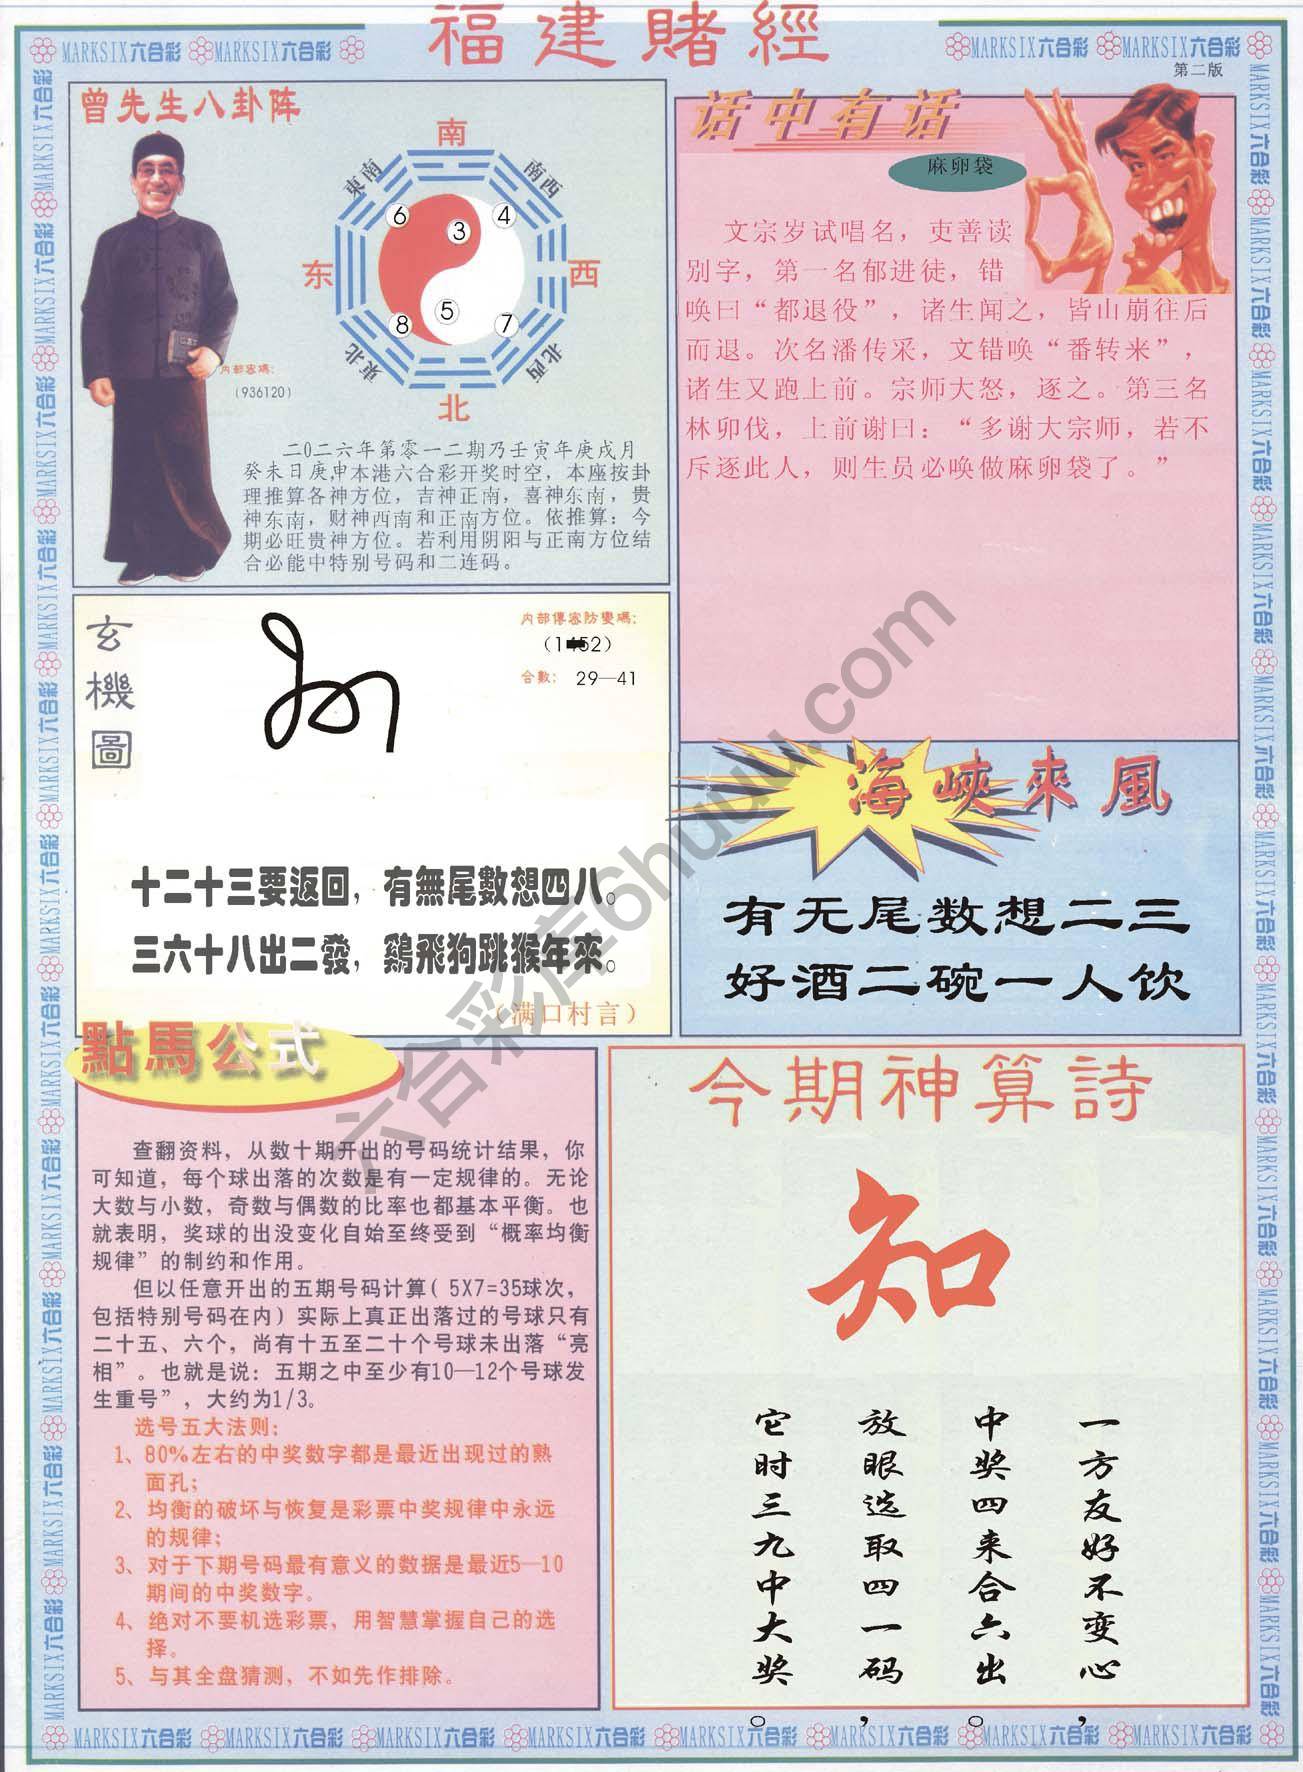 福建賭經
MARKSIX六合彩 MARKSIX六合彩
MARKSIX六合彩 MARKSIX六合彩
第二版
曾先生八卦阵
南
東南
南西
6
3
4
东
西
5
8
7
東北
北西
北
内部密碼:
(936120)
二0二六年第零一二期乃壬寅年庚戌月
癸未日庚申本港六合彩开奖时空，本座按卦
理推算各神方位，吉神正南，喜神东南，贵
神东南，财神西南和正南方位。依推算：今
期必旺贵神方位。若利用阴阳与正南方位结
合必能中特别号码和二连码。
话中有话
麻卵袋
文宗岁试唱名，吏善读
别字，第一名郁进徒，错
唤曰“都退役”，诸生闻之，皆山崩往后
而退。次名潘传采，文错唤“番转来”，
诸生又跑上前。宗师大怒，逐之。第三名
林卯伐，上前谢曰：“多谢大宗师，若不
斥逐此人，则生员必唤做麻卵袋了。”
玄機圖
内部傳密防變碼:
合數: 29—41
十二十三要返回，有無尾數想四八。
三六十八出二發，鷄飛狗跳猴年來。
（满口村言）
海峽來風
有无尾数想二三
好酒二碗一人饮
點馬公式
查翻资料，从数十期开出的号码统计结果，你
可知道，每个球出落的次数是有一定规律的。无论
大数与小数，奇数与偶数的比率也都基本平衡。也
就表明，奖球的出没变化自始至终受到“概率均衡
规律”的制约和作用。
但以任意开出的五期号码计算( 5X7=35球次，
包括特别号码在内）实际上真正出落过的号球只有
二十五、六个，尚有十五至二十个号球未出落“亮
相”。也就是说：五期之中至少有10—12个号球发
生重号”，大约为1/3。
选号五大法则:
1、80%左右的中奖数字都是最近出现过的熟
面孔；
2、均衡的破坏与恢复是彩票中奖规律中永远
的规律；
3、对于下期号码最有意义的数据是最近5—10
期间的中奖数字。
4、绝对不要机选彩票，用智慧掌握自己的选
择。
5、与其全盘猜测，不如先作排除。
今期神算詩
知
一方友好不变心，
中奖四来合六出。
放眼选取四一码，
它时三九中大奖。
六合彩库6huuu.com
MARKSIX六合彩 MARKSIX六合彩 MARKSIX六合彩 MARKSIX六合彩 MARKSIX六合彩 MARKSIX六合彩 MARKSIX六合彩 MARKSIX六合彩